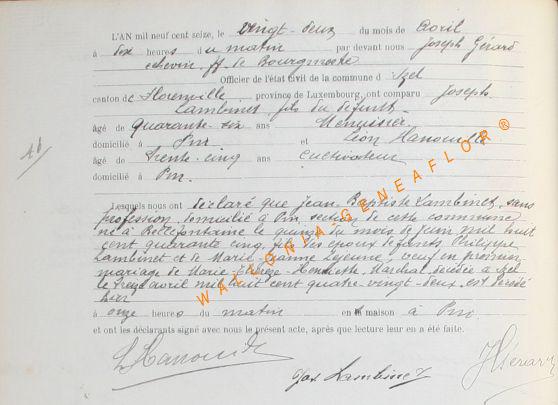 L'AN mil neuf cent seize, le vingt-deux du mois de Avril
à dix heures du matin par devant nous Joseph Gérard
échevin ff. de Bourgmestre
Officier de l'état civil de la commune d'Izel
canton de Florenville, province de Luxembourg, ont comparu Joseph
Lambinet fils du défunt
âgé de quarante-six ans Menuisier
domicilié à Pin et Léon Hanouille
âgé de trente-cinq ans cultivateur
domicilié à Pin.
Lesquels nous ont déclaré que Jean-Baptiste Lambinet, sans
profession, domicilié à Pin, section de cette commune
né à Bellefontaine le quinze du mois de juin mil huit
cent quarante cinq, fils des époux défunts Philippe
Lambinet et de Marie-Jeanne Lejeune, veuf en premier
mariage de Marie-Thérèse-Henriette Marchal décédée à Izel
le treize avril mil huit cent quatre-vingt-deux est décédé
hier
à onze heures du matin en la maison à Pin
et ont les déclarants signé avec nous le présent acte, après que lecture leur en a été faite.
Jos. Lambinet
JGérard
WALLONIA-GENEAFLOR ®